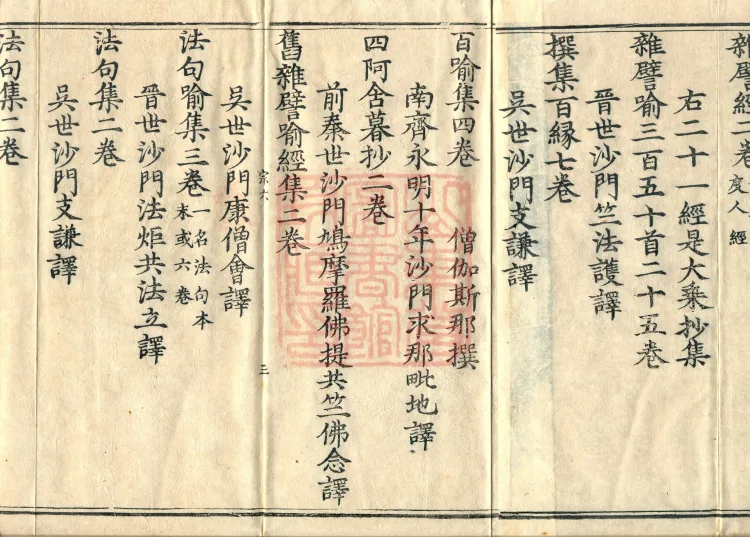 雜譬經二卷 度人經
右二十一經是大乗抄集
雜譬喻三百五十首二十五卷
晉世沙門竺法護譯
撰集百縁七卷
吳世沙門支謙譯
百喻集四卷 僧伽斯那撰
南齊永明十年沙門求那毗地譯
四阿含暮抄二卷
前秦世沙門鳩摩羅佛提共竺佛念譯
舊雜譬喻經集二卷
宗六 三
吳世沙門康僧會譯
法句喻集三卷 一名法句本末或六卷
晉世沙門法炬共法立譯
法句集二卷
吳世沙門支謙譯
法句集二卷